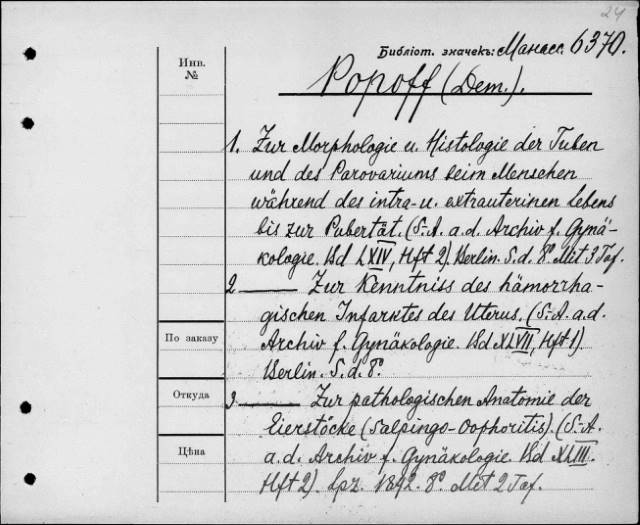 24
Библіот. значекъ: Манасс. 6370.
Инв.
№
Popoff (Dem.).
1. Zur Morphologie u. Histologie der Tuben
und des Parovariums beim Menschen
während des intra- u. extrauterinen Lebens
bis zur Pubertät. (S.-A. a. d. Archiv f. Gynä-
kologie. Bd LXIV, Hft 2). Berlin. S. d. 8° Mit 3 Taf.
2 ——— Zur Kenntniss des hämorrha-
gischen Infarktes des Uterus. (S.-A. a. d.
По заказу
Archiv f. Gynäkologie. Bd XLVII, Hft 1).
Berlin. S. d. 8°
Откуда
3 ——— Zur pathologischen Anatomie der
Eierstöcke (Salpingo-Oophoritis). (S.-A.
Цѣна
a. d. Archiv f. Gynäkologie. Bd XLIII.
Hft 2). Lpz. 1892. 8° Mit 2 Taf.